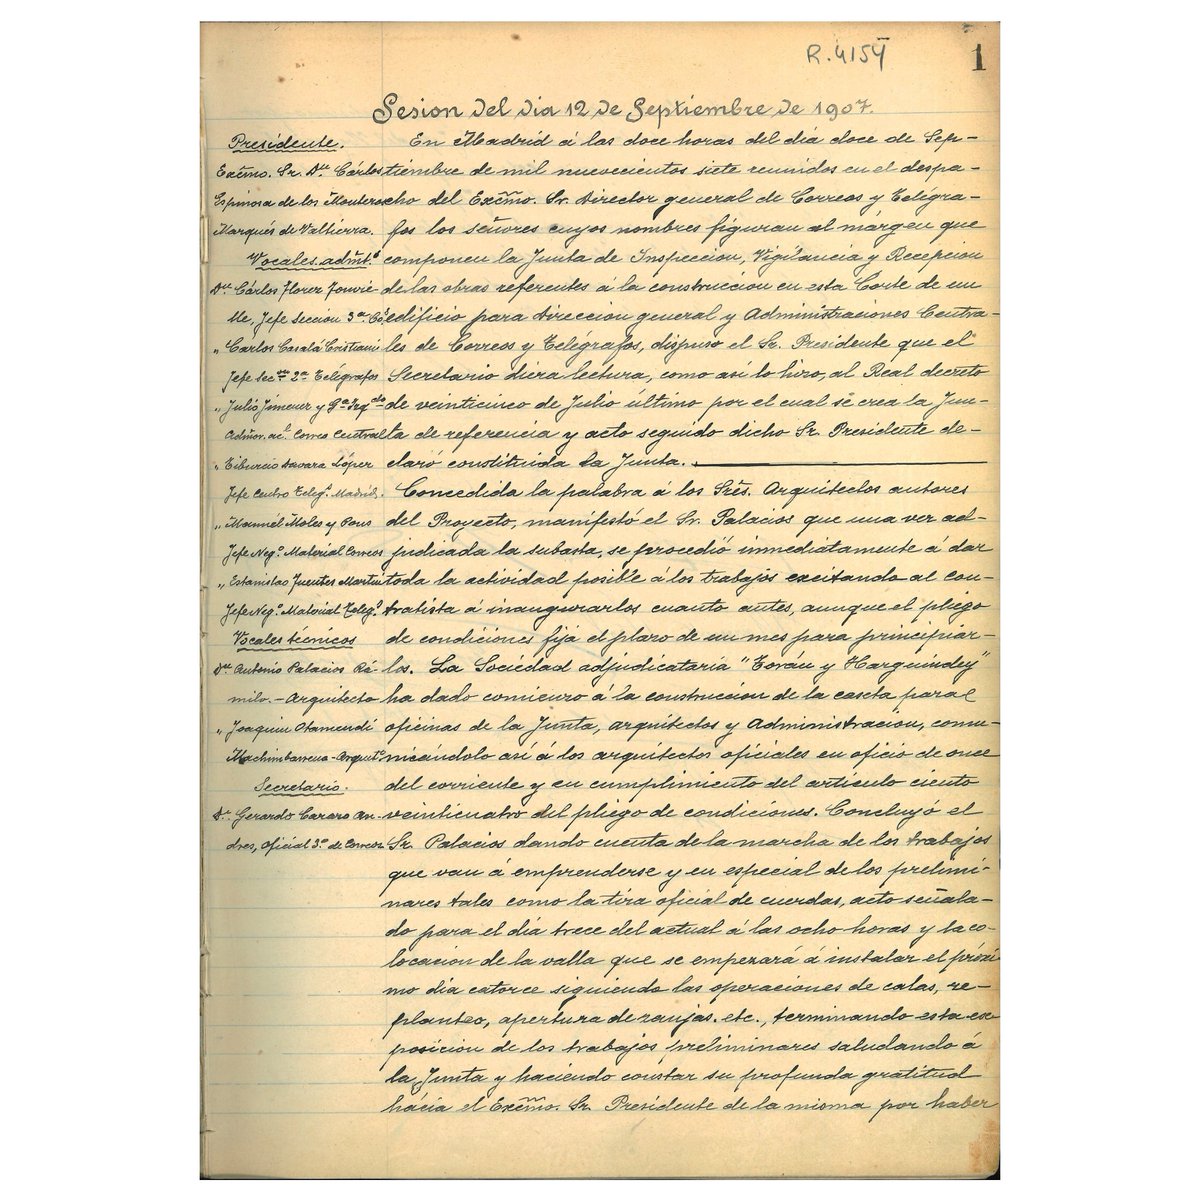 R.4154
1
Sesion del dia 12 de Septiembre de 1907.
Presidente.
Excmo. Sr. Dn. Cárlos
Espinosa de los Monteros
Marqués de Valtierra.
Vocales admts
Dn. Cárlos Florez
lle, Jefe Sección 3ª
" Carlos Casalá Cristiani
Jefe Secon 2ª Telégrafos
" Julio Jimenez y
Admor. Correo Central
" Tiburcio Davara López
Jefe Centro Telegº Madrid.
" Manuel Moles y Pons
Jefe Negº. Material Correos
" Estanislao Fuentes Martin
Jefe Negº. Material Telegº
Vocales técnicos
Dn. Antonio Palacios Ra-
milo.- Arquitecto
" Joaquin Otamendi
Machimbarrena - Arquitº
Secretario.
Dn. Gerardo An-
dres, oficial 3º de Correos
En Madrid á las doce horas del dia doce de Sep-
tiembre de mil nuevecientos siete reunidos en el despa-
cho del Excmo. Sr. Director general de Correos y Telégra-
fos los señores cuyos nombres figuran al márgen que
componen la Junta de Inspeccion, Vigilancia y Recepcion
de las obras referentes á la construccion en esta Corte de un
edificio para Direccion general y Administraciones Centra-
les de Correos y Telégrafos, dispuso el Sr. Presidente que el
Secretario diera lectura, como asi lo hizo, al Real decreto
de veinticinco de Julio último por el cual se crea la Jun-
ta de referencia y acto seguido dicho Sr. Presidente de-
claró constituida la Junta.
Concedida la palabra á los Sres. Arquitectos autores
del Proyecto, manifestó el Sr. Palacios que una vez ad-
judicada la subasta, se procedió inmediatamente á dar
toda la actividad posible á los trabajos excitando al con-
tratista á inaugurarlos cuanto antes, aunque el pliego
de condiciones fija el plazo de un mes para principiar-
los. La Sociedad adjudicataria "Torán y Harguindey"
ha dado comienzo á la construccion de la caseta para
oficinas de la Junta, Arquitectos y Administracion, comu-
nicándolo asi á los arquitectos oficiales en oficio de once
del corriente y en cumplimiento del articulo ciento
veinticuatro del pliego de condiciones. Concluyó el
Sr. Palacios dando cuenta de la marcha de los trabajos
que van á emprenderse y en especial de los prelimi-
nares tales como la tira oficial de cuerdas, acto señala-
do para el dia trece del actual á las ocho horas y la co-
locacion de la valla que se empezará á instalar el próxi-
mo dia catorce siguiendo las operaciones de calas, re-
planteo, apertura de zanjas. etc., terminando esta ex-
posicion de los trabajos preliminares saludando á
la Junta y haciendo constar su profunda gratitud
hácia el Excmo. Sr. Presidente de la misma por haber